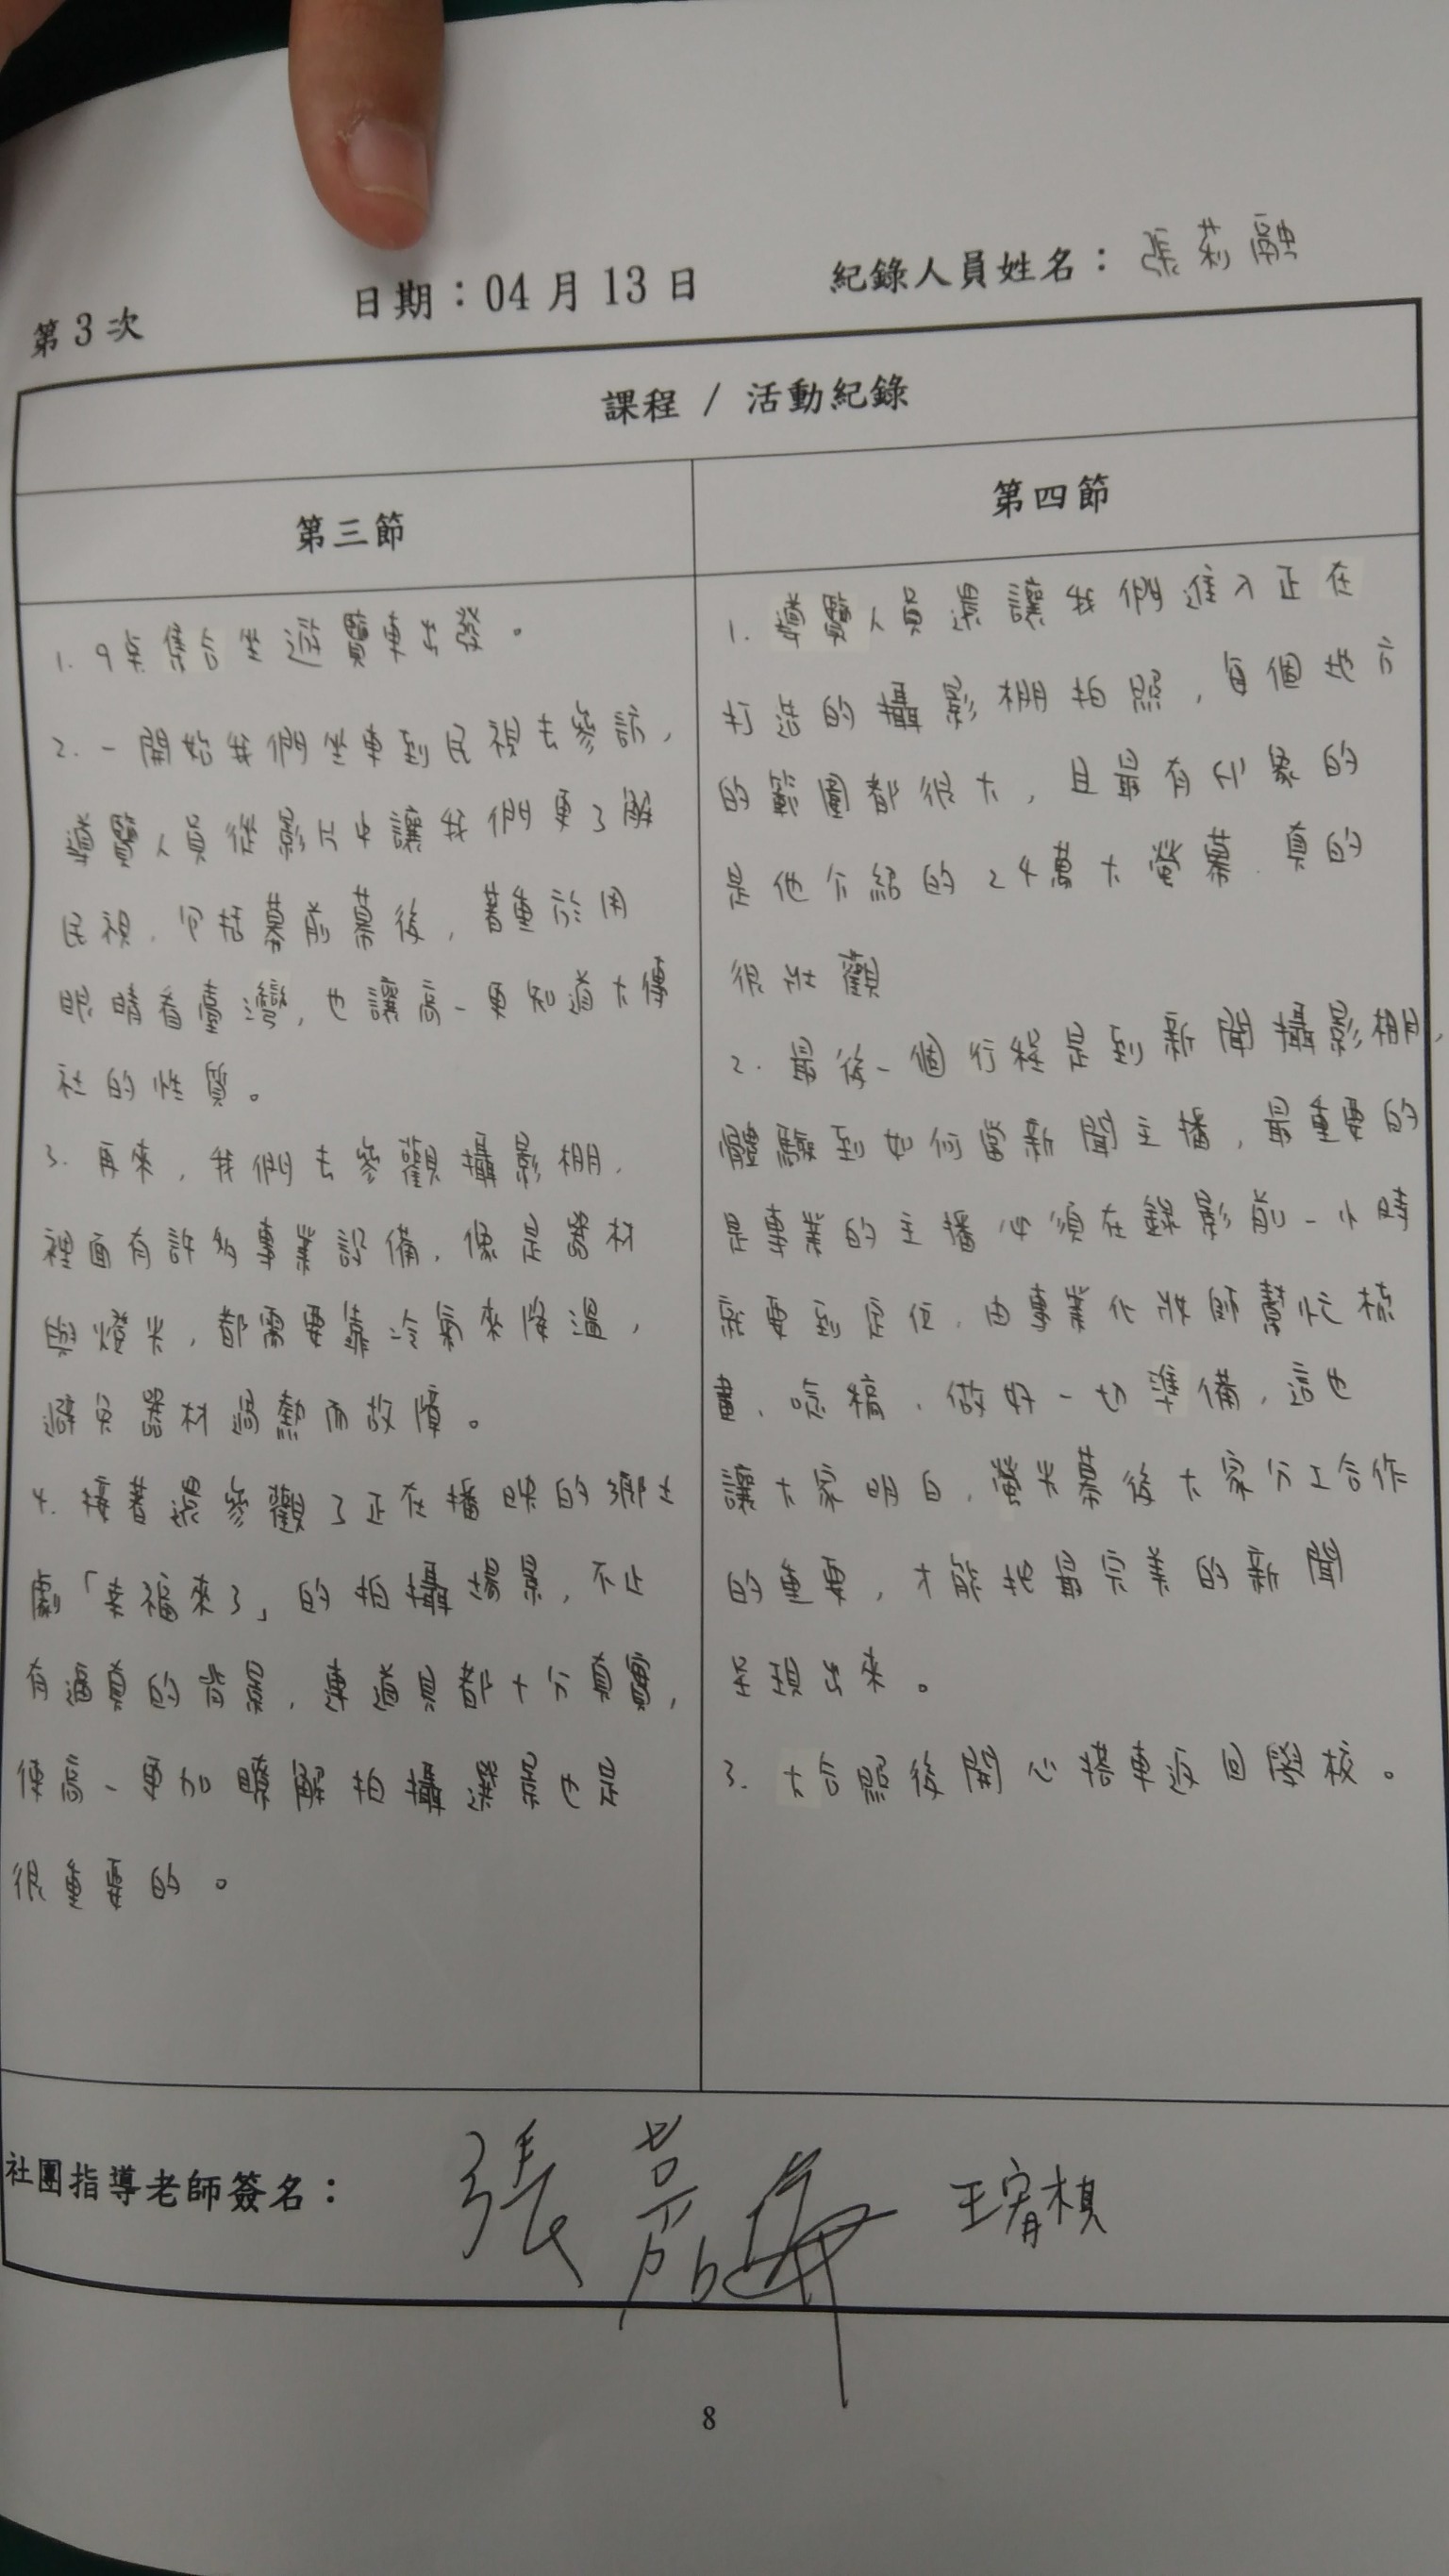 第 3 次
日期：04 月 13 日
紀錄人員姓名：張莉融
課程 / 活動紀錄
第三節
1. 9點集合坐遊覽車出發。
2. 一開始我們坐車到民視去參訪，
導覽人員從影片中讓我們更了解
民視，包括幕前幕後，著重於用
眼睛看臺灣，也讓高一更知道大傳
社的性質。
3. 再來，我們去參觀攝影棚，
裡面有許多專業設備，像是器材
與燈光，都需要靠冷氣來降溫，
避免器材過熱而故障。
4. 接著還參觀了正在播映的鄉土
劇「幸福來了」的拍攝場景，不止
有逼真的背景，連道具都十分真實，
使高一更加瞭解拍攝選景也是
很重要的。
第四節
1. 導覽人員還讓我們進入正在
打造的攝影棚拍照，每個地方
的範圍都很大，且最有印象的
是他介紹的24萬大螢幕，真的
很壯觀
2. 最後一個行程是到新聞攝影棚，
體驗到如何當新聞主播，最重要的
是專業的主播必須在錄影前一小時
就要到定位，由專業化妝師幫忙梳
畫、唸稿，做好一切準備，這也
讓大家明白，螢光幕後大家分工合作
的重要，才能把最完美的新聞
呈現出來。
3. 大合照後開心搭車返回學校。
社團指導老師簽名：
張
8